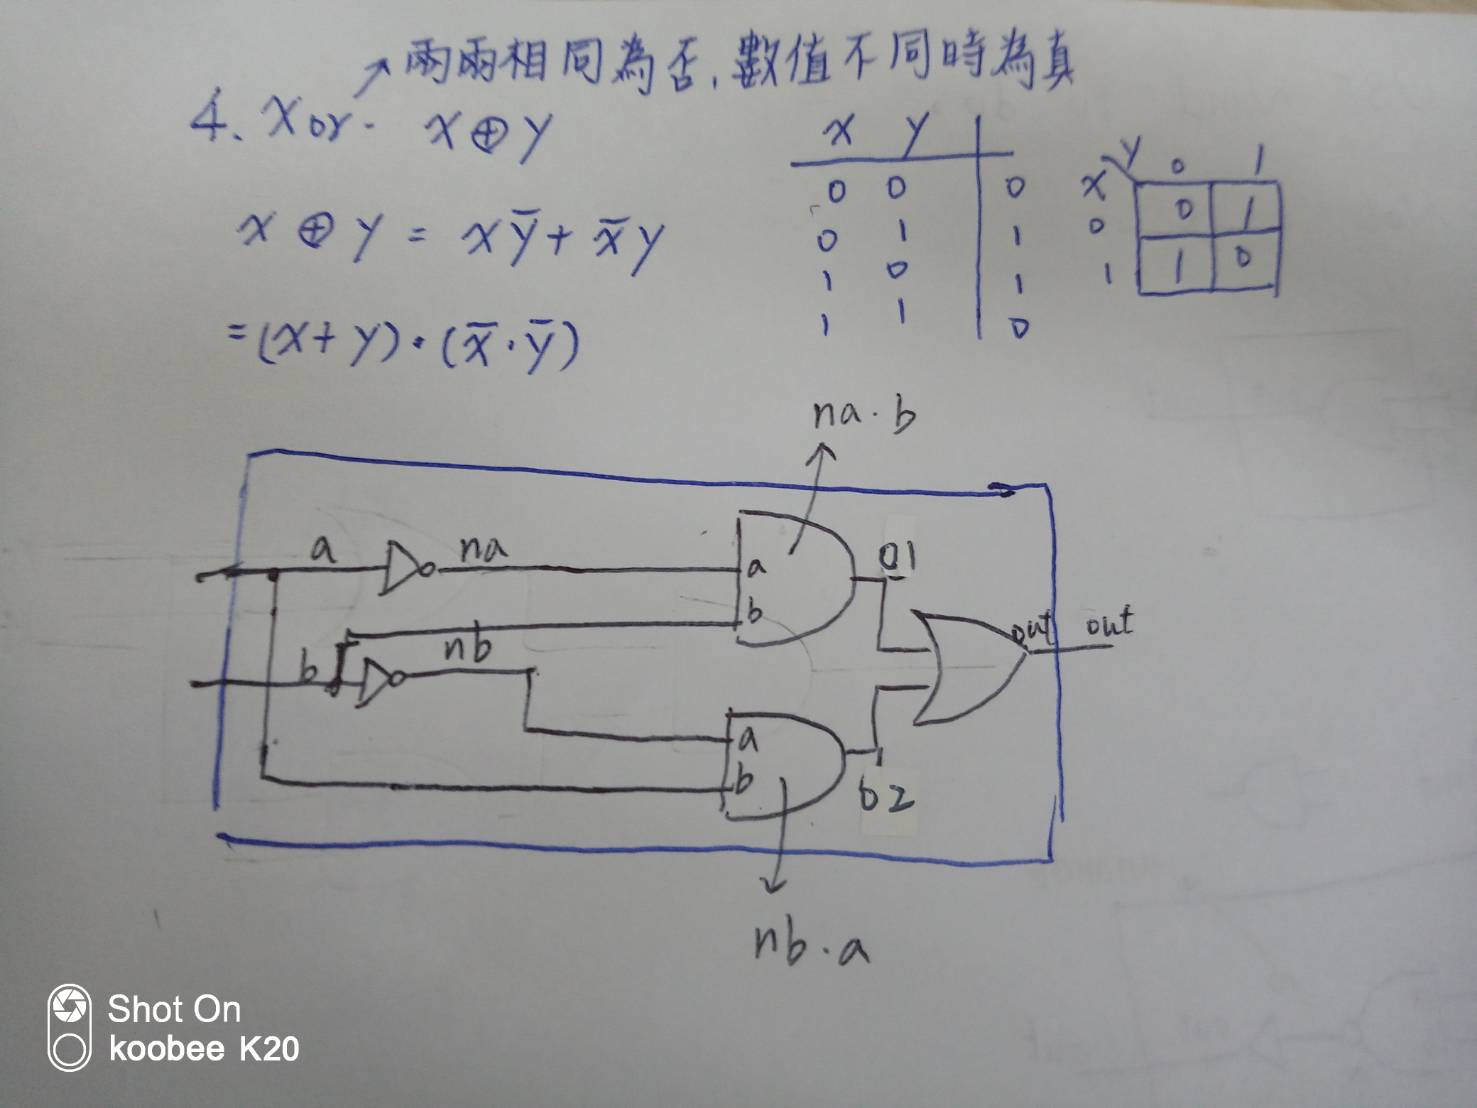 兩兩相同為否,數值不同時為真
4. Xor. X⊕Y
X⊕Y = Xȳ + x̄y
=(X+Y)·(x̄·ȳ)
X Y
0 0 0
0 1 1
1 0 1
1 1 0
Y 0 1
X
0 0 1
1 1 0
na·b
a na a 01
b
b nb out out
a
b 02
nb·a
Shot On
koobee K20